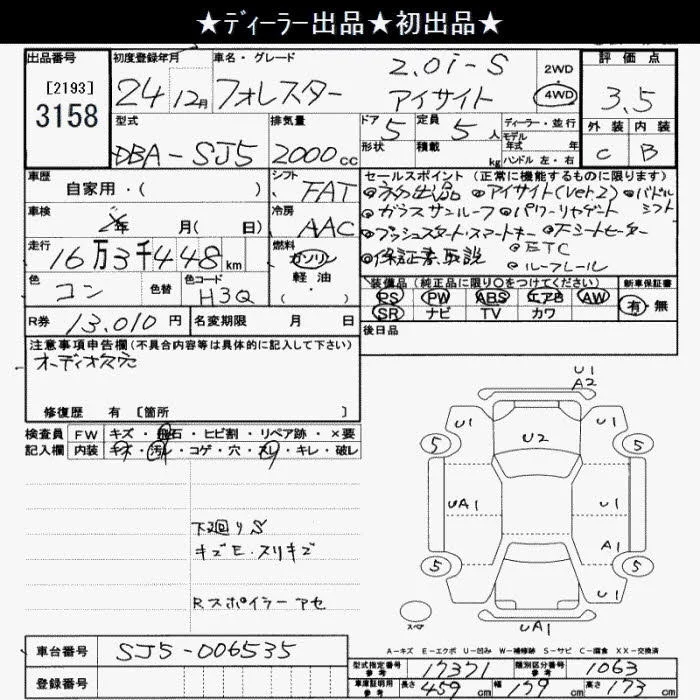 ★ディーラー出品★初出品★
出品番号 初度登録年月 車名・グレード 評価点
[2193] 3158 24 12月 フォレスター 2.0i-S アイサイト 2WD 4WD 3.5
型式 排気量 ドア 定員 ディーラー・並行 外装 内装
DBA-SJ5 2000cc 5 5人 モデル年式 年 C B
形状 積載 kg ハンドル 左・右
車歴 シフト セールスポイント(正常に機能するものに限ります)
自家用・( ) FAT ◎初出品 ◎アイサイト(ver.2) ◎パドルシフト
車検 年 月( 日) 冷房 AAC ◎ガラスサンルーフ ◎パワーリヤゲート
◎プッシュスタート・スマートキー ◎シートヒーター
走行 16万3千448km 燃料 ガソリン 軽油・( ) ◎保証書、取説 ◎ETC
◎ルーフレール
色 コン 色替 色コード H3Q 装備品(純正品に限り○をつけてください) 新車保証書
PS PW ABS エアB AW 有・無
SR ナビ TV カワ
R券 13,010円 名変期限 月 日 後日品
注意事項申告欄(不具合内容等は具体的に記入して下さい)
オーディオ欠穴
修復歴 有 [箇所 ]
検査員 FW キズ・飛石・ヒビ割・リペア跡・×要
記入欄 内装 キズ・汚レ・コゲ・穴・スレ・キレ・破レ
下廻りS
キズE・スリキズ
Rスポイラーアセ
U1
A2
U1 U2 U1
5 5
UA1 U1
A1
5 5
U1
スペア
UA1
A-キズ E-エクボ U-凹み W-補修跡 S-サビ C-腐食 XX-交換済
車台番号 SJ5-006535 型式指定番号 参考 17371 類別区分番号 参考 1063
登録番号 車庫証明用 参考 長さ 459cm 幅 179cm 高さ 173cm